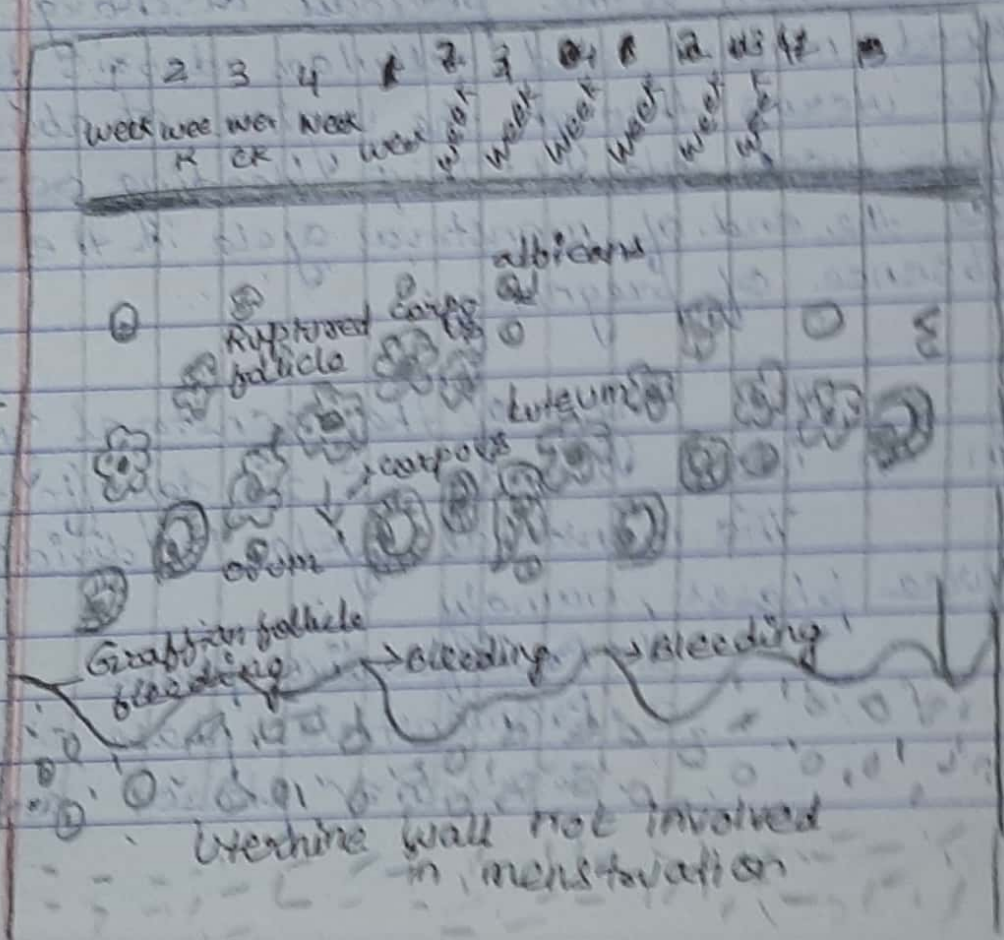 1 2 3 4 1 2 3 4 1 2 3
week wee wee week week week week week week week week
K ek
albicans
Ruptured Corpo
follicle
Luteum
corpous
ovum
Graffian follicle
bleeding
Bleeding
Bleeding
Uterhine wall not involved
in menstruation